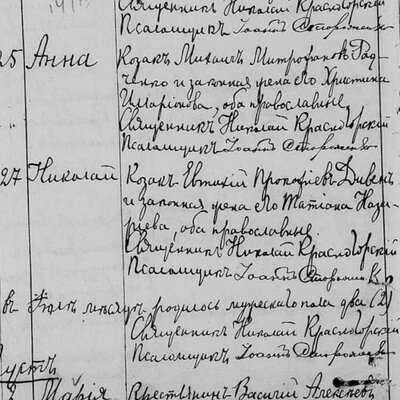 Священникъ Николай Красногорскій
Псаломщикъ Іоаннъ
25 Анна Козакъ Михаилъ Митрофановъ Рад-
ченко и законная жена его Христина
Иларіонова, оба православные
Священникъ Николай Красногорскій
Псаломщикъ Іоаннъ
27 Николай Козакъ Евтихій Прокофіевъ
и законная жена его Татіана Наза-
рьева, оба православные.
Священникъ Николай Красногорскій
Псаломщикъ Іоаннъ
въ Іюлѣ мѣсяцѣ родилось мужескаго пола два (2)
Священникъ Николай Красногорскій
Псаломщикъ Іоаннъ
Марія Крестьянинъ Василій Алексѣевъ